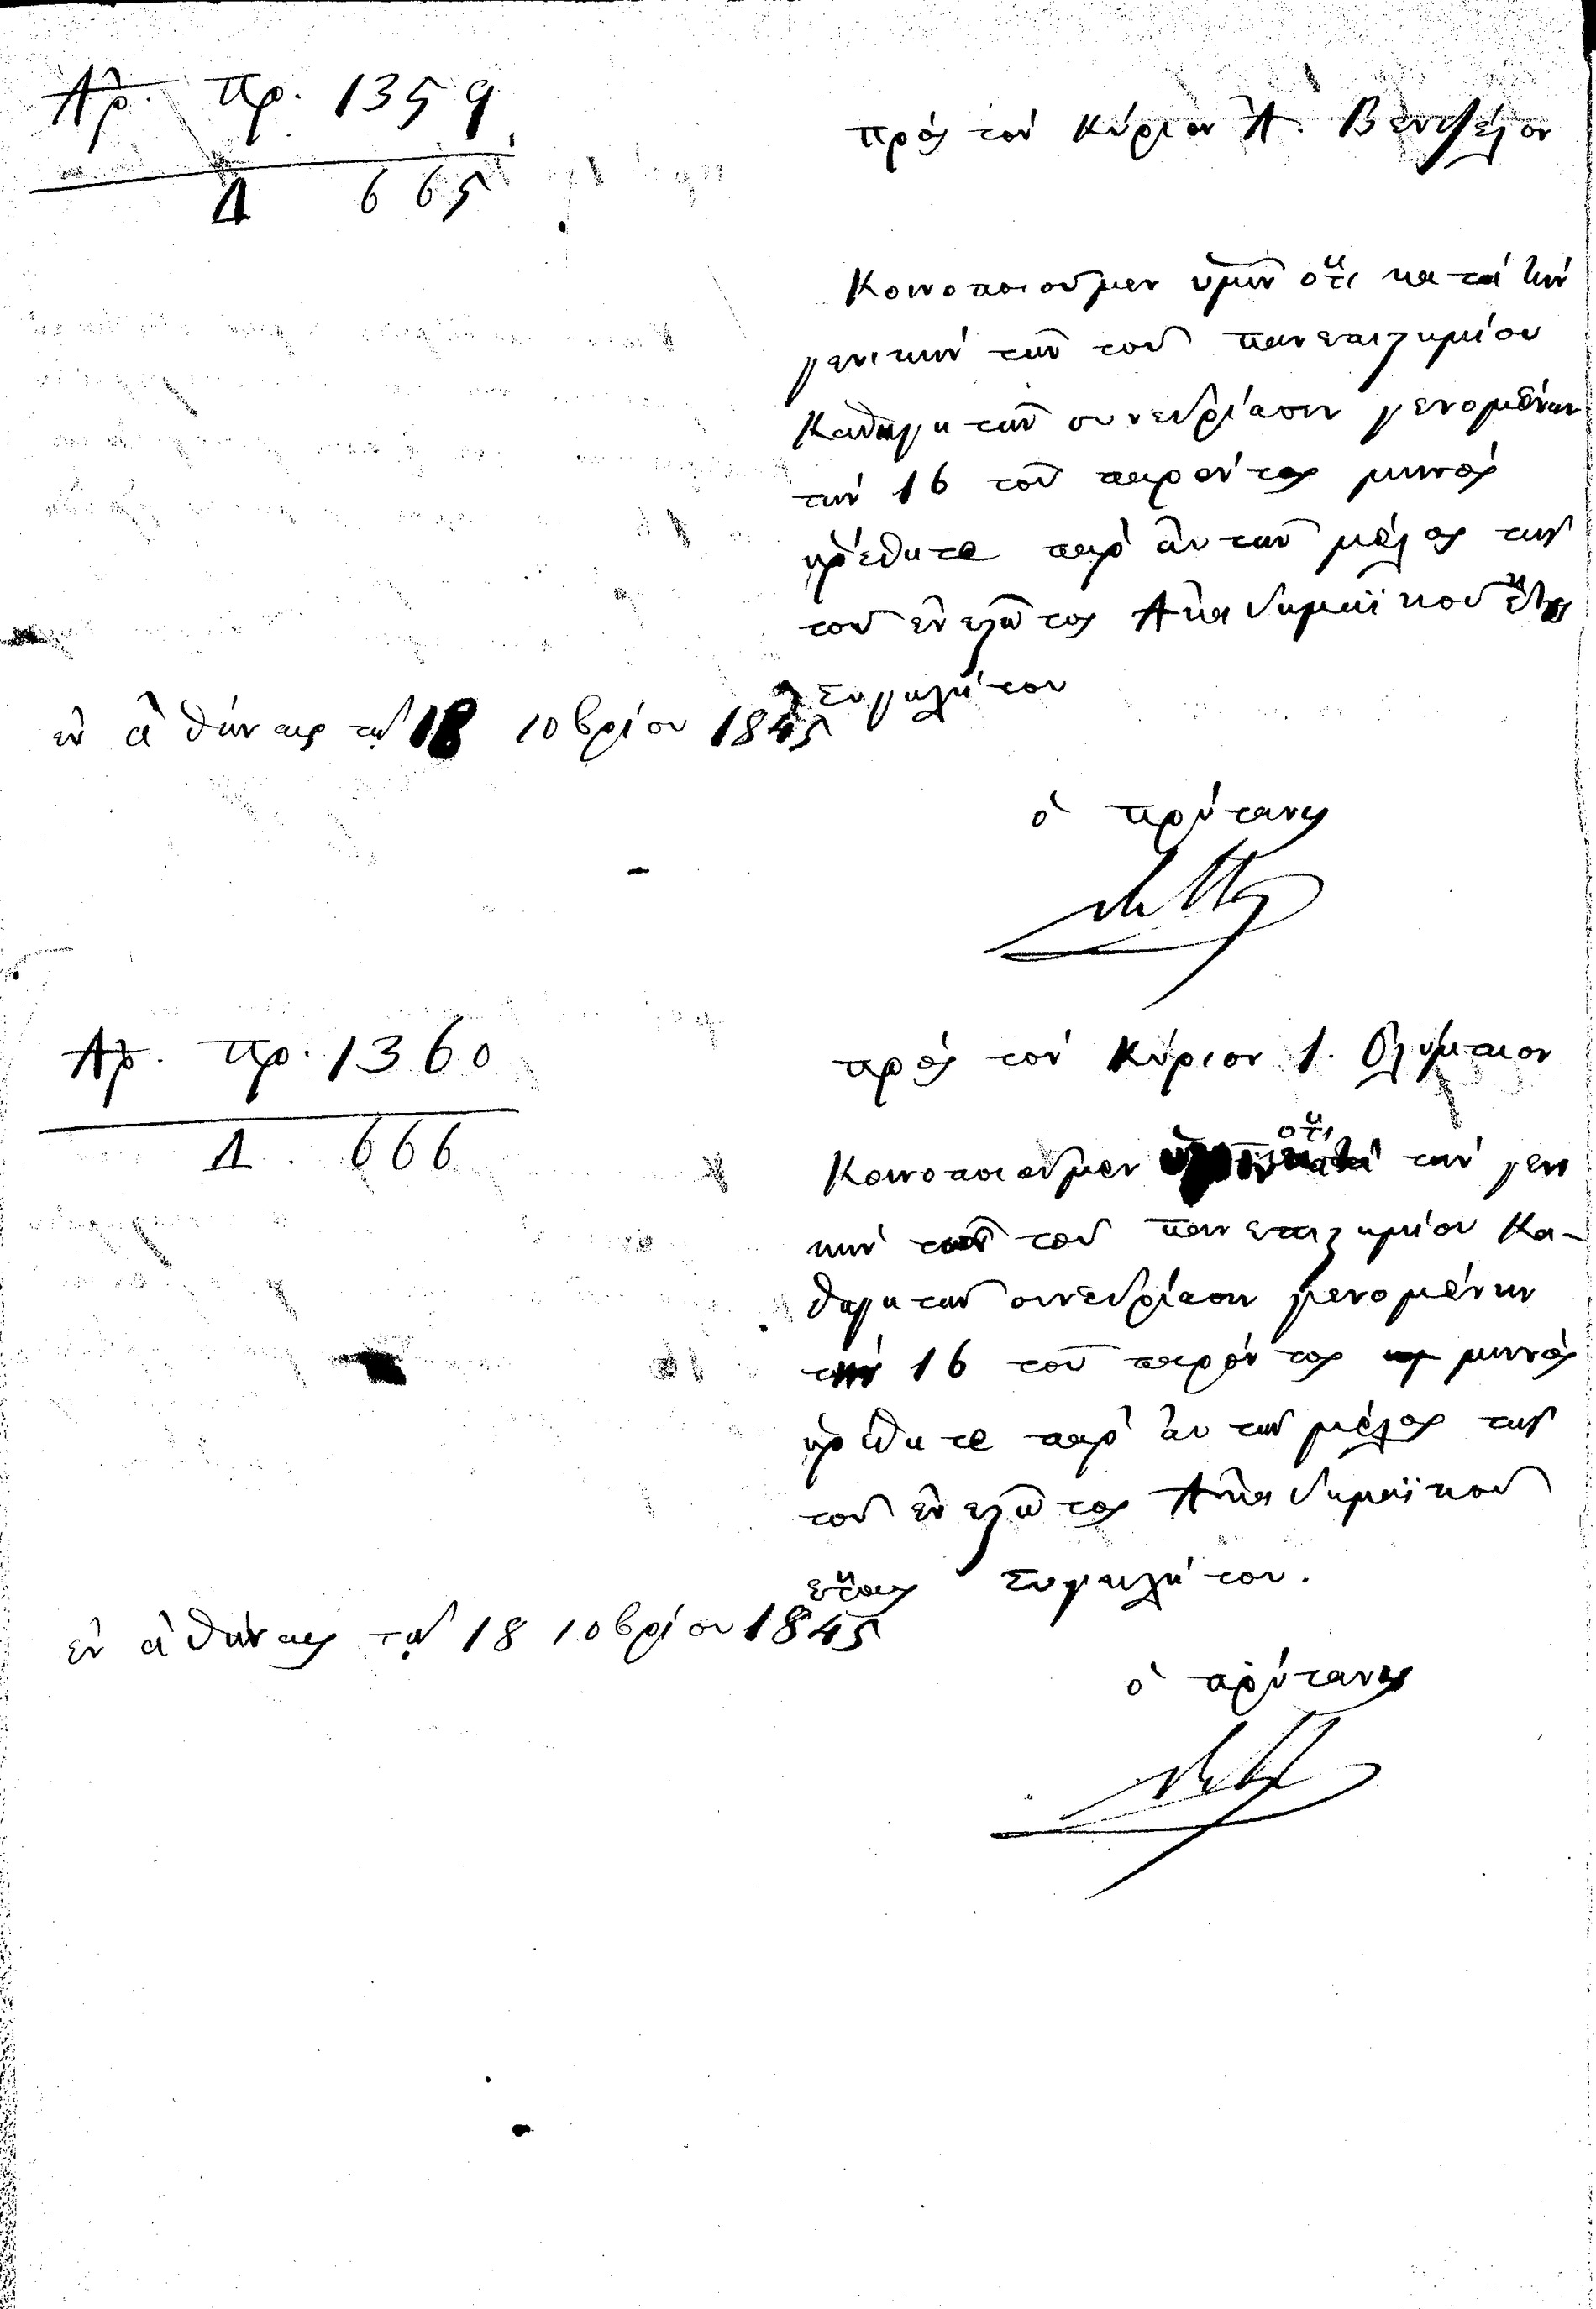 Αρ. πρ. 1359
Δ 665
πρὸς τὸν Κύριον Ἀ. Βενιζέλον
Κοινοποιοῦμεν ὑμῖν ὅτι κατὰ τὴν
γενικὴν τῶν τοῦ πανεπιστημίου
Καθηγητῶν συνεδρίασιν γενομένην
τὴν 16 τοῦ παρόντος μηνὸς
ᾑρέθητε παρ' αὐτῶν μέλος τῆς
τοῦ ἐνεστῶτος Ἀκαδημαϊκοῦ ἔτους
Συγκλήτου
ἐν ἀθήναις τῇ 18 10βρίου 1845
ὁ πρύτανις
Αρ. πρ. 1360
Δ. 666
πρὸς τὸν Κύριον Ι. Ολύμπιον
Κοινοποιοῦμεν ὅτι κατὰ τὴν γενι
κὴν τῶν τοῦ πανεπιστημίου Κα-
θηγητῶν συνεδρίασιν γενομένην
τὴν 16 τοῦ παρόντος μηνὸς
ᾑρέθητε παρ' αὐτῶν μέλος τῆς
τοῦ ἐνεστῶτος Ἀκαδημαϊκοῦ
ἔτους Συγκλήτου.
ἐν ἀθήναις τῇ 18 10βρίου 1845
ὁ πρύτανις